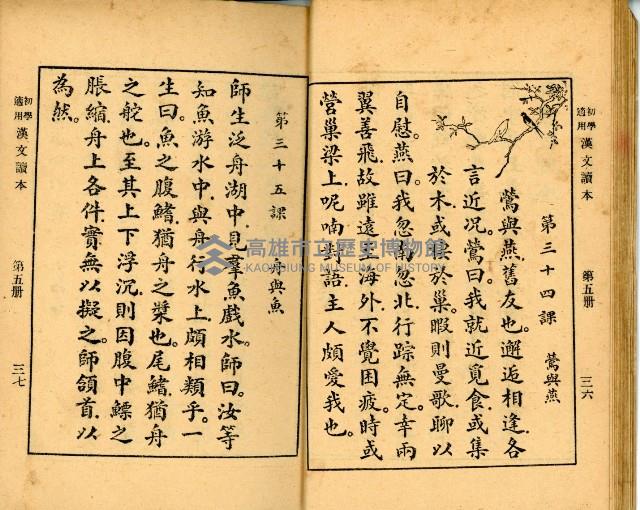 初學適用 漢文讀本 第五册 三六
第三十四課 鶯與燕
鶯與燕舊友也。邂逅相逢。各
言近況。鶯曰。我就近覓食。或集
於木。或棲於巢。暇則曼歌。聊以
自慰。燕曰。我忽南忽北。行踪無定。幸兩
翼善飛。故雖遠至海外。不覺困疲。時或
營巢梁上。呢喃對語。主人頗愛我也。
第三十五課 舟與魚
師生泛舟湖中。見羣魚戲水。師曰。汝等
知魚游水中。與舟行水上頗相類乎。一
生曰。魚之腹鰭。猶舟之槳也。尾鰭。猶舟
之舵也。至其上下浮沉。則因腹中鰾之
脹縮。舟上各件。實無以擬之。師頷首。以
為然。
初學適用 漢文讀本 第五册 三七
高雄市立歷史博物館
KAOHSIUNG MUSEUM OF HISTORY